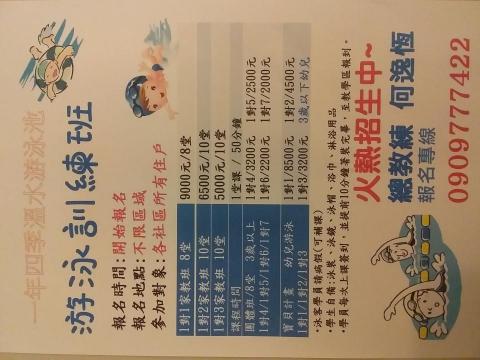 一年四季溫水游泳池
游泳訓練班
報名時間:開始報名
報名地點:不限區域
參加對象:各社區所有住戶
1對1家教班 8堂 9000元/8堂
1對2家教班 10堂 6500元/10堂
1對3家教班 10堂 5000元/10堂
課程時間 1堂課/50分鐘
團體班/8堂 3歲以上 1對4/3200元 1對5/2500元
1對4/1對5/1對6/1對7 1對6/2200元 1對7/2000元
寶貝計畫 幼兒游泳 1對1/8500元 1對2/4500元
1對1/1對2/1對3 1對3/3200元 3歲以下幼兒
•泳客學員請病假(可補課)
•學生自備:泳裝、泳鏡、泳帽、浴巾、淋浴用品
•學員每次上課簽到,並提前10分鐘著裝完畢,至教學區報到。
火熱招生中~
總教練 何逸恆
報名專線
0909777422